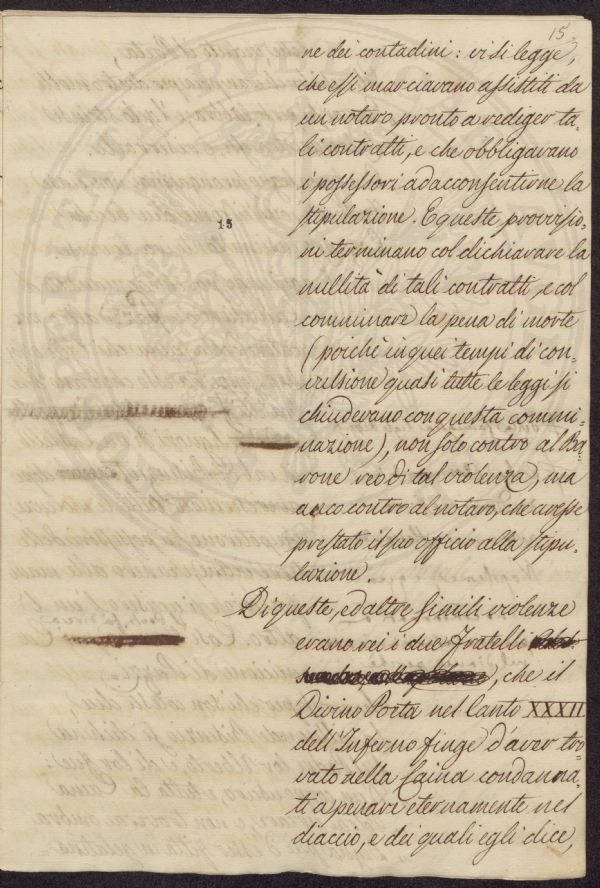 15.
ne dei contadini: vi si legge,
che essi marciavano assistiti da
un notaro pronto a rediger ta-
li contratti, e che obbligavano
i possessori ad acconsentirne la
stipulazione. E queste provvisio-
15
ni terminano col dichiarare la
nullità di tali contratti, e col
comminare la pena di morte
(poichè in quei tempi di con-
vulsione quasi tutte le leggi si
chiudevano con questa commi-
nazione), non solo contro al Ba-
rone reo di tal violenza, ma
anco contro al notaro, che avesse
prestato il suo officio alla stipu-
lazione.
Di queste, ed altre simili violenze
erano rei i due Fratelli
, che il
Divino Poeta nel Canto XXXII
dell'Inferno finge d'aver tro-
vato nella Caina condanna-
ti a penare eternamente nel
diaccio, e dei quali egli dice,